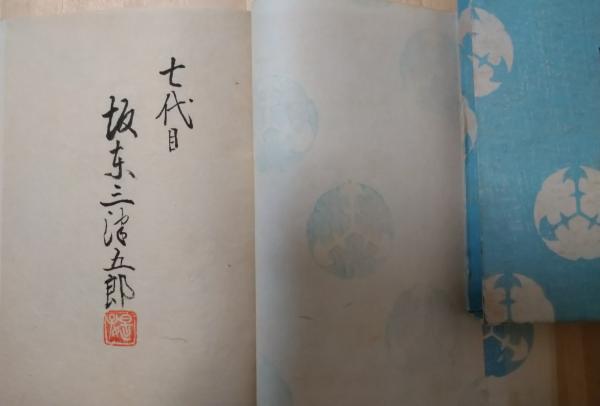 七代目
坂东三津五郎